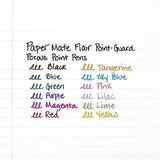 Paper Mate Flair Point-Guard
Porous Point Pens
lll Black lll Tangerine
lll Blue lll Sky Blue
lll Green lll Pink
lll Purple lll Lilac
lll Magenta lll Lime
lll Red lll Yellow